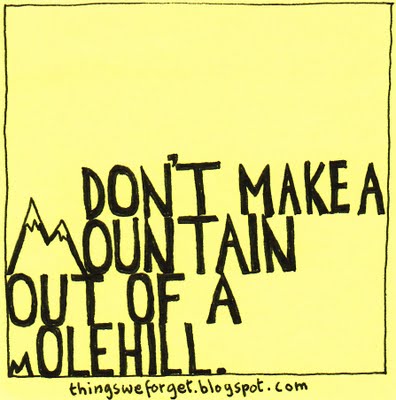 DON'T MAKE A
MOUNTAIN
OUT OF A
MOLEHILL.
thingsweforget.blogspot.com